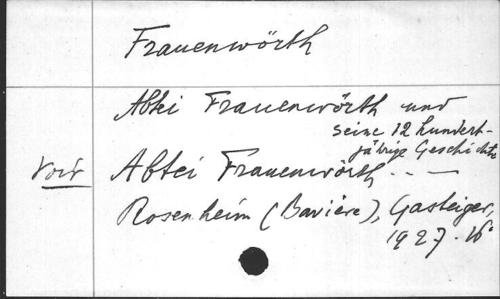 Frauenwörth
Abtei Frauenwörth und
seine 12 hundert-
jährige Geschichte
Voir Abtei Frauenwörth - - —
Rosenheim (Bavière), Gasteiger,
1927. 16°